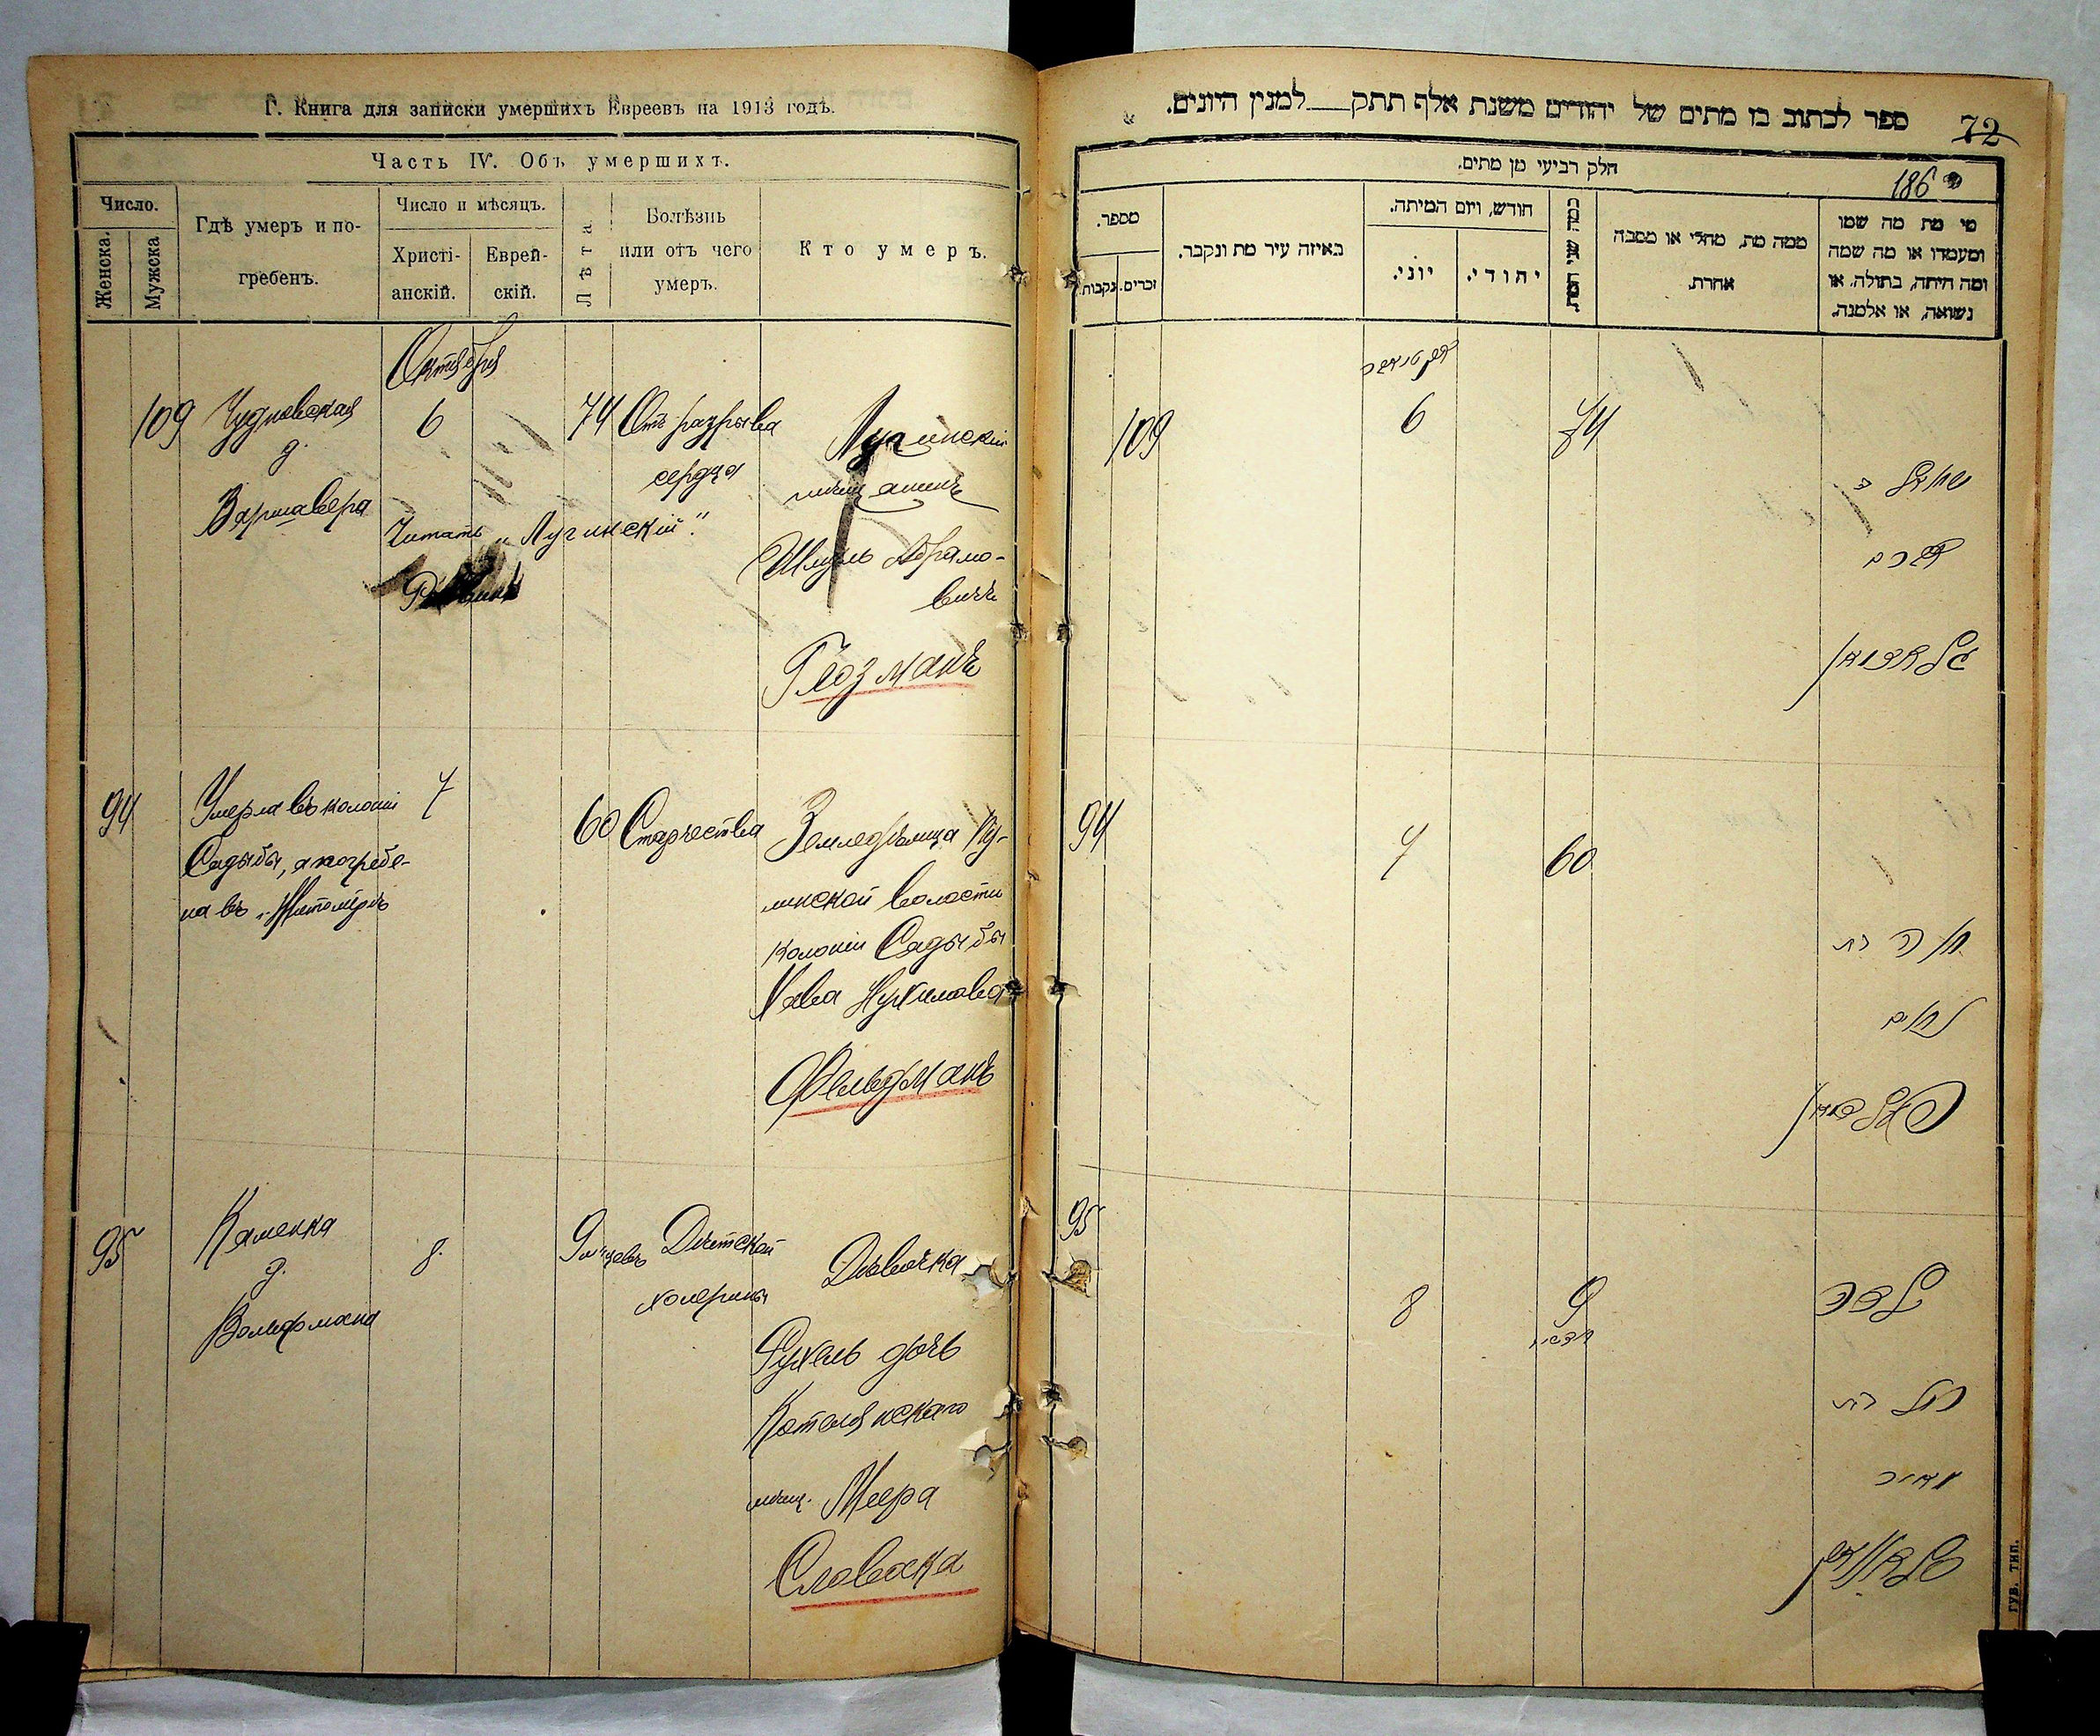 Г. Книга для записки умершихъ Евреевъ на 1913 годъ.
Часть IV. Объ умершихъ.
Число.
Женска.
Мужска
Гдѣ умеръ и по-
гребенъ.
Число и мѣсяцъ.
Христі-
анскій.
Еврей-
скій.
Лѣта
Болѣзнь
или отъ чего
умеръ.
Кто умеръ.
Октября
109
Чудновская
д.
Варшавера
6
74
Отъ разрыва
сердца
Лугинскій
мѣщанинъ
Шмуль Абрамо-
вичъ
Глозманъ
Читать „Лугинскій".
94
Умерла въ колоніи
Садыбы, а погребе-
на въ г. Житомірѣ
7
60
Старчества
Земледѣлица Ку-
линской волости
колоніи Садыбы
Хава Нухимова
Фельдманъ
95
Каменка
д.
Вольфмана
8
9 м-цевъ
Дѣтской
холерины
Дѣвочка
Рухель дочь
Котелянскаго
мѣщ. Меера
Словака
ספר לכתוב בו מתים של יהודים משנת אלף תתק למנין היונים.
72
חלק רביעי מן מתים.
186
מספר.
נקבות.
זכרים.
באיזה עיר מת ונקבר.
חודש, ויום המיתה.
יוני.
יהודי.
כמה שני המת
ממה מת, מחלי או מסבה
אחרת.
מי מת מה שמו
ומעמדו או מה שמה
ומה היתה, בתולה, או
נשואה, או אלמנה.
אקטיאבר
109
6
74
שמואל ב
אברהם
גלאזמאן
94
7
60
חוה בת
נחום
פעלדמאן
95
8
9
חדשי
ילדה
רחל בת
מאיר
סלאוואק
губ. тип.